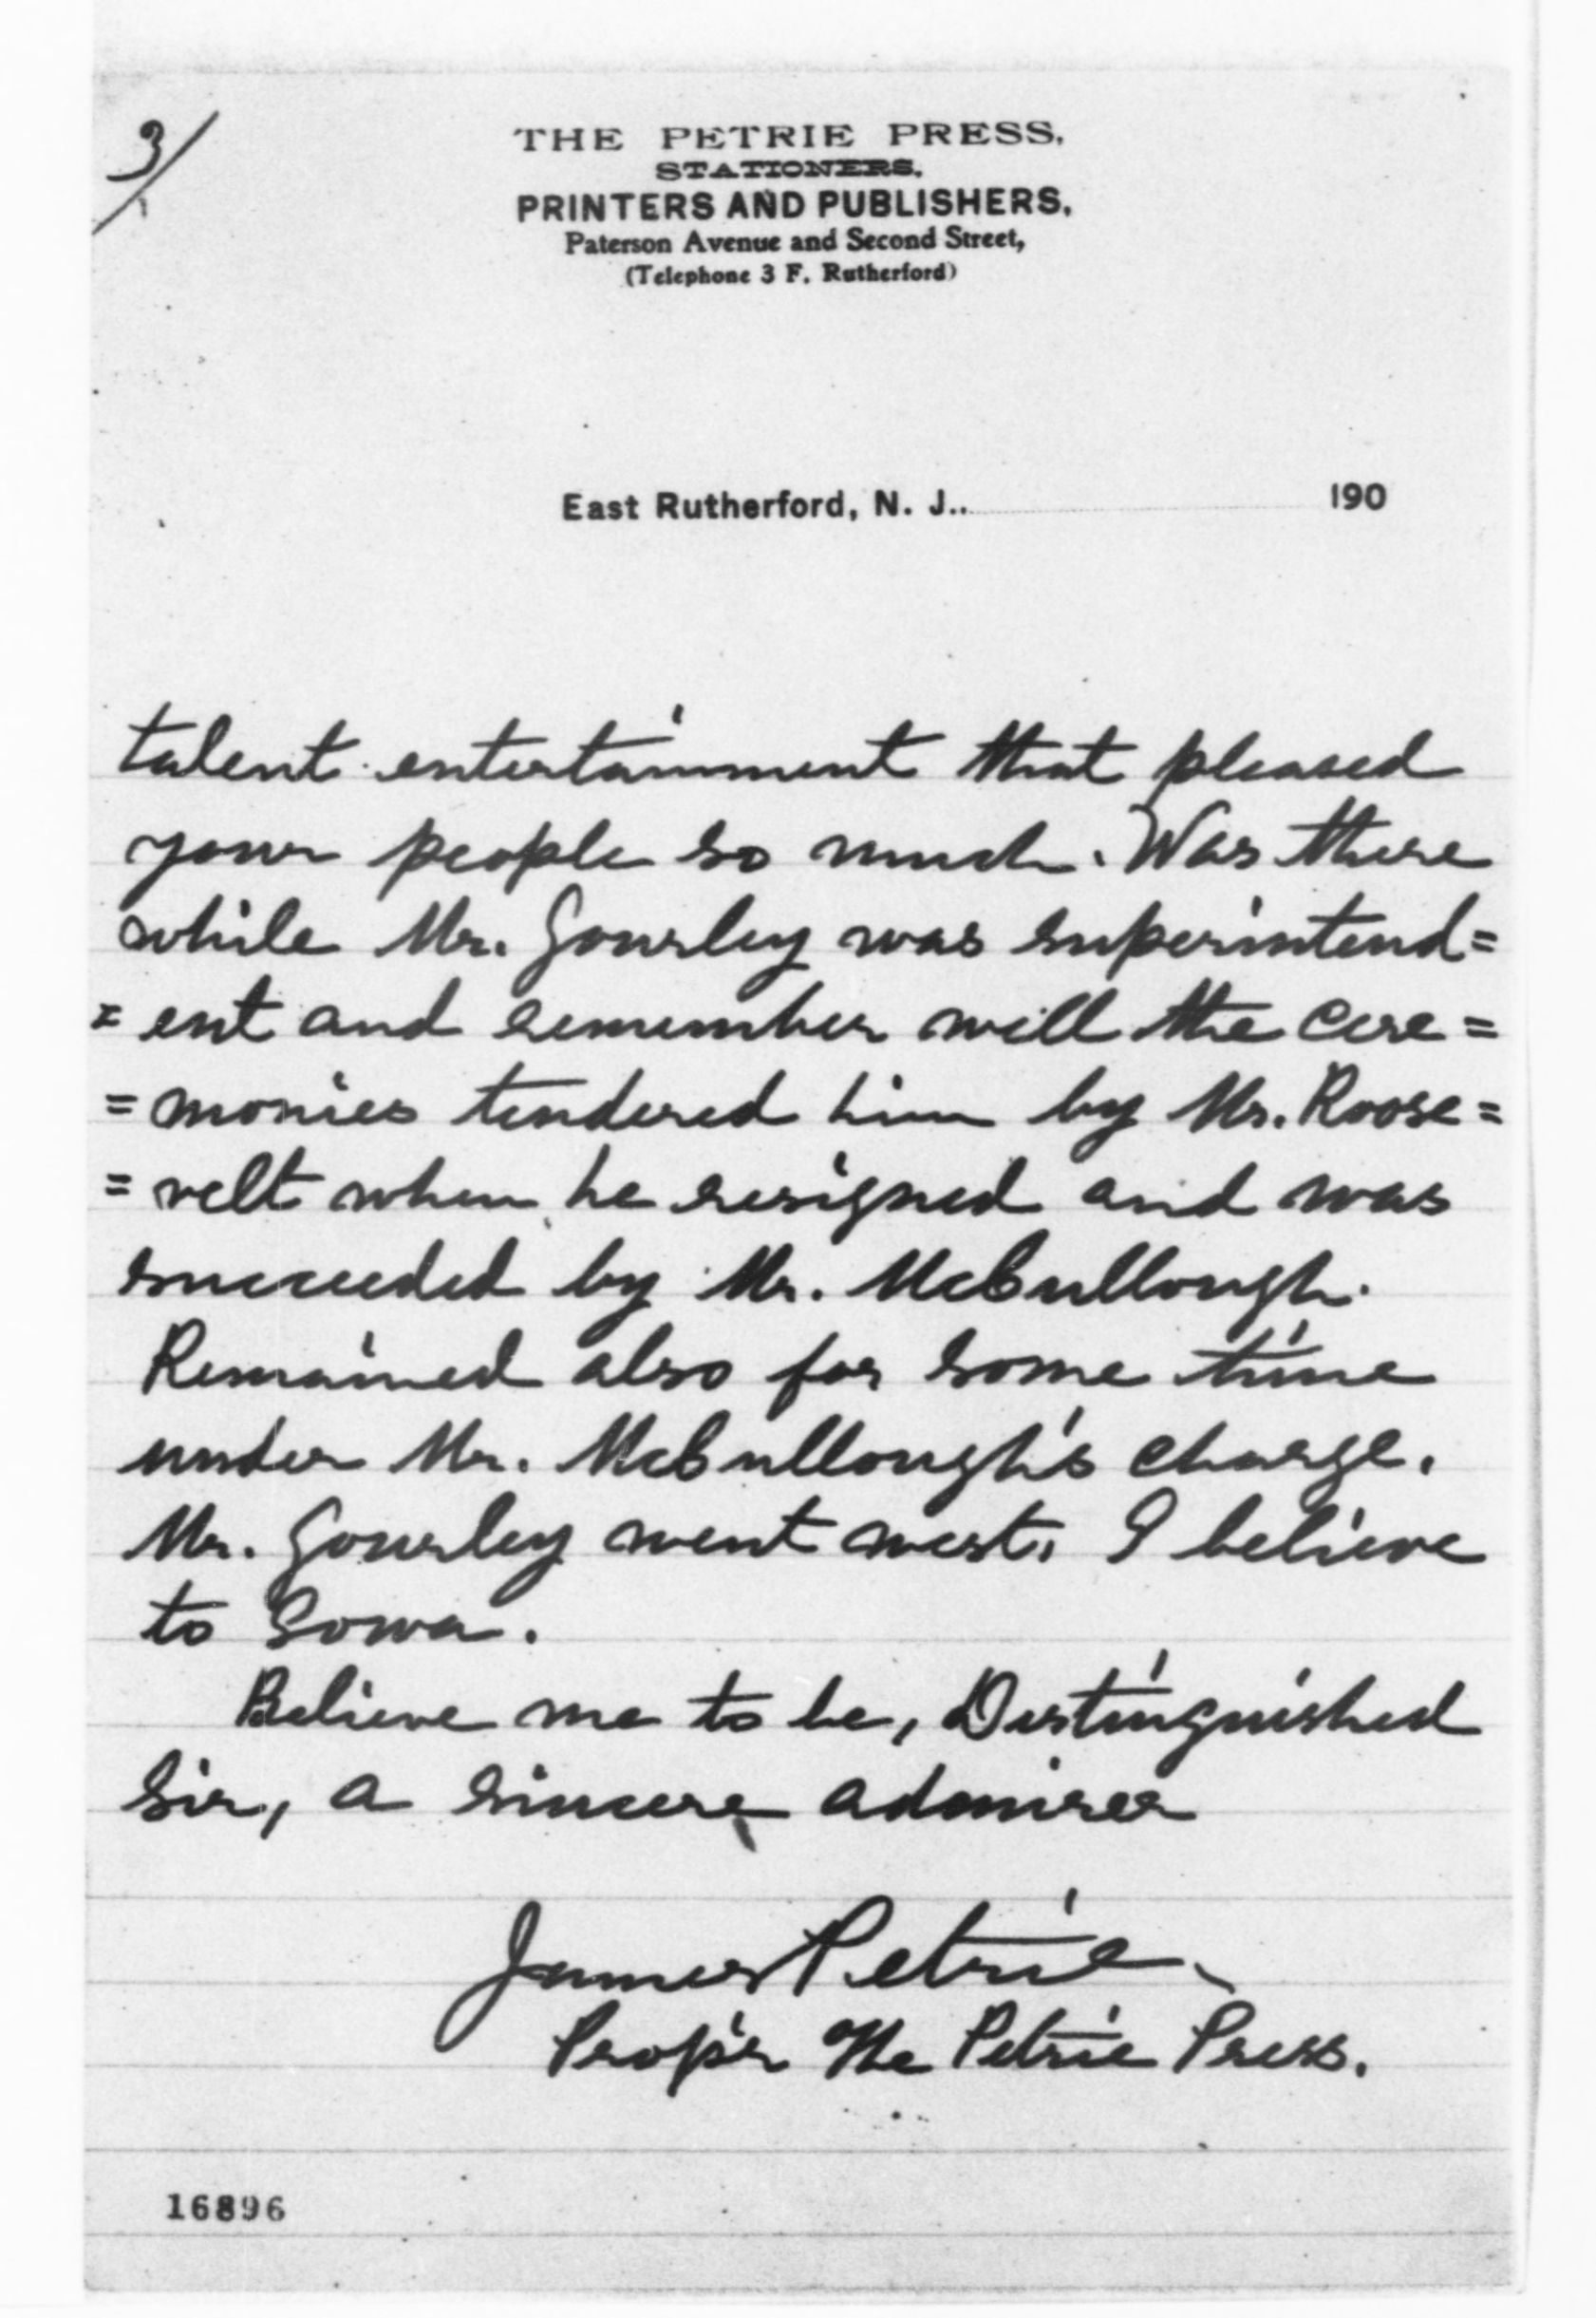 3/
THE PETRIE PRESS,
STATIONERS,
PRINTERS AND PUBLISHERS,
Paterson Avenue and Second Street,
(Telephone 3 F. Rutherford)
East Rutherford, N. J.. 190
talent entertainment that pleased
your people so much. Was there
while Mr. Gourley was superintend=
= ent and remember well the cere =
= monies tendered him by Mr. Roose =
= velt when he resigned and was
succeeded by Mr. McCullough.
Remained also for some time
under Mr. McCullough's charge.
Mr. Gourley went west, I believe
to Iowa.
Believe me to be, Distinguished
Sir, a sincere admirer
James Petrie,
Prop'r The Petrie Press.
16896